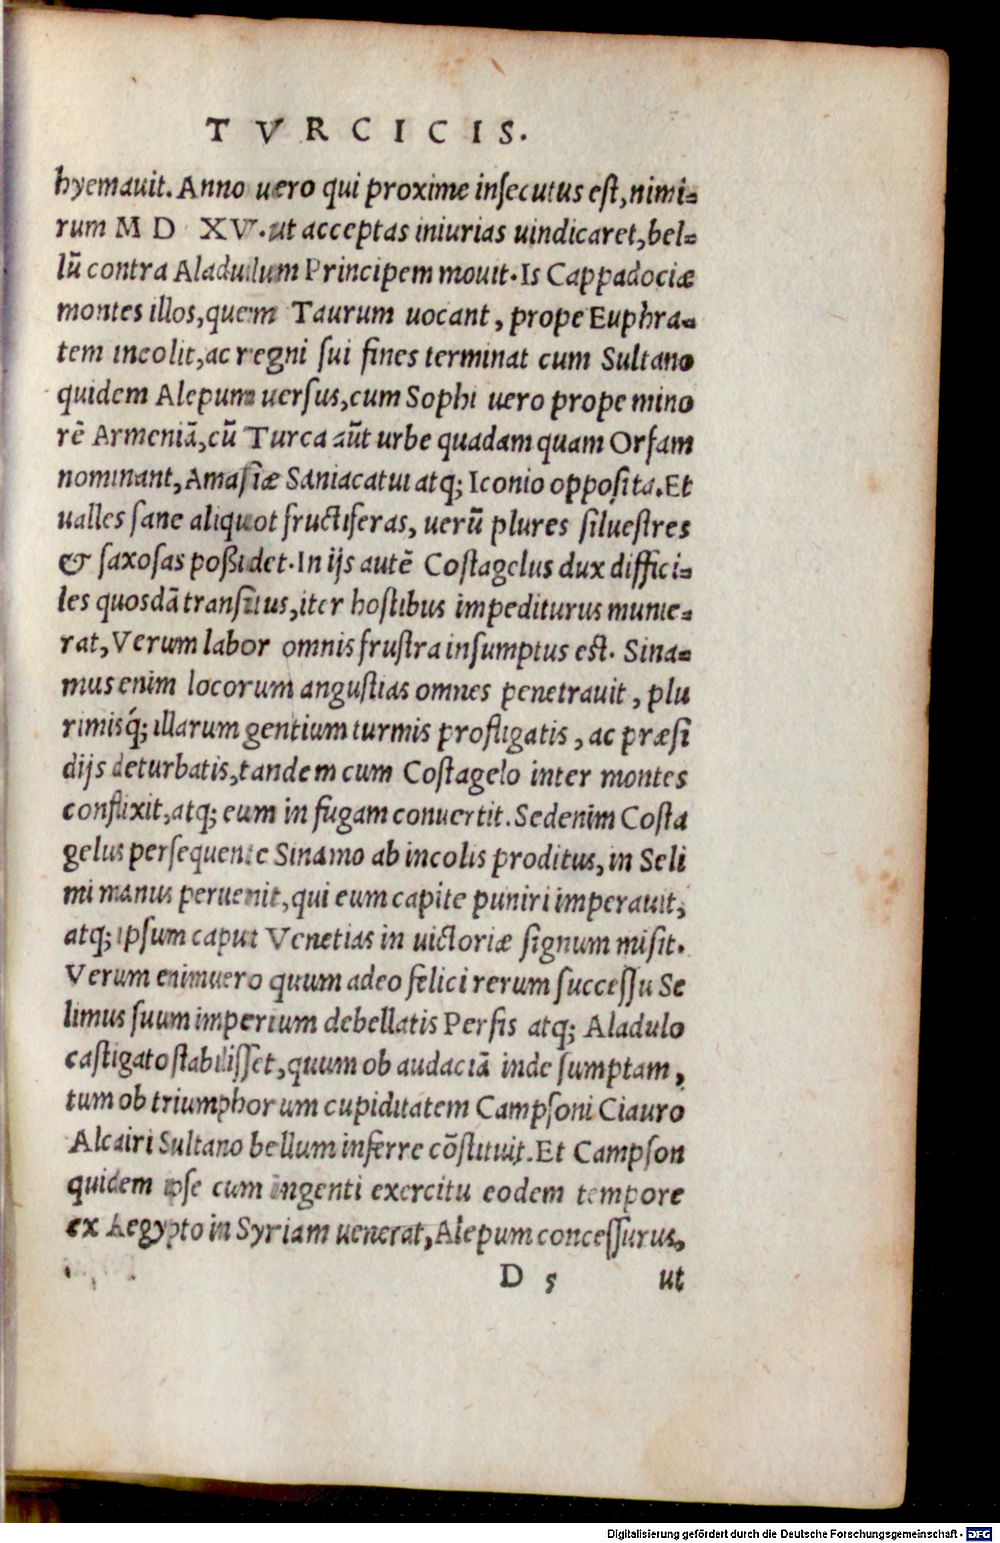 TVRCICIS.
hyemauit. Anno uero qui proxime insecutus est, nimi-
rum M D XV. ut acceptas iniurias uindicaret, bel-
lū contra Aladulum Principem mouit. Is Cappadociæ
montes illos, quem Taurum uocant, prope Euphra-
tem incolit, ac regni sui fines terminat cum Sultano
quidem Alepum uersus, cum Sophi uero prope mino
rē Armeniā, cū Turca aūt urbe quadam quam Orfam
nominant, Amasiæ Saniacatui atq; Iconio opposita. Et
ualles sane aliquot fructiferas, uerū plures siluestres
& saxosas possidet. In ijs autē Costagelus dux diffici-
les quosdā transitus, iter hostibus impediturus munie-
rat, Verum labor omnis frustra insumptus est. Sina-
mus enim locorum angustias omnes penetrauit, plu
rimisq́; illarum gentium turmis profligatis, ac præsi
dijs deturbatis, tandem cum Costagelo inter montes
conflixit, atq; eum in fugam conuertit. Sed enim Costa
gelus persequente Sinamo ab incolis proditus, in Seli
mi manus peruenit, qui eum capite puniri imperauit,
atq; ipsum caput Venetias in uictoriæ signum misit.
Verum enimuero quum adeo felici rerum successu Se
limus suum imperium debellatis Persis atq; Aladulo
castigato stabilisset, quum ob audaciā inde sumptam,
tum ob triumphorum cupiditatem Campsoni Ciauro
Alcairi Sultano bellum inferre cōstituit. Et Campson
quidem ipse cum ingenti exercitu eodem tempore
ex Aegypto in Syriam uenerat, Alepum concessurus,
D 5 ut
Digitalisierung gefördert durch die Deutsche Forschungsgemeinschaft - DFG